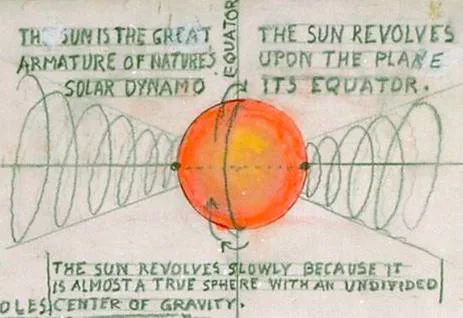 THE SUN IS THE GREAT
ARMATURE OF NATURES
SOLAR DYNAMO
EQUATOR
THE SUN REVOLVES
UPON THE PLANE
ITS EQUATOR.
THE SUN REVOLVES SLOWLY BECAUSE IT
IS ALMOST A TRUE SPHERE WITH AN UNDIVIDED
OLES CENTER OF GRAVITY.